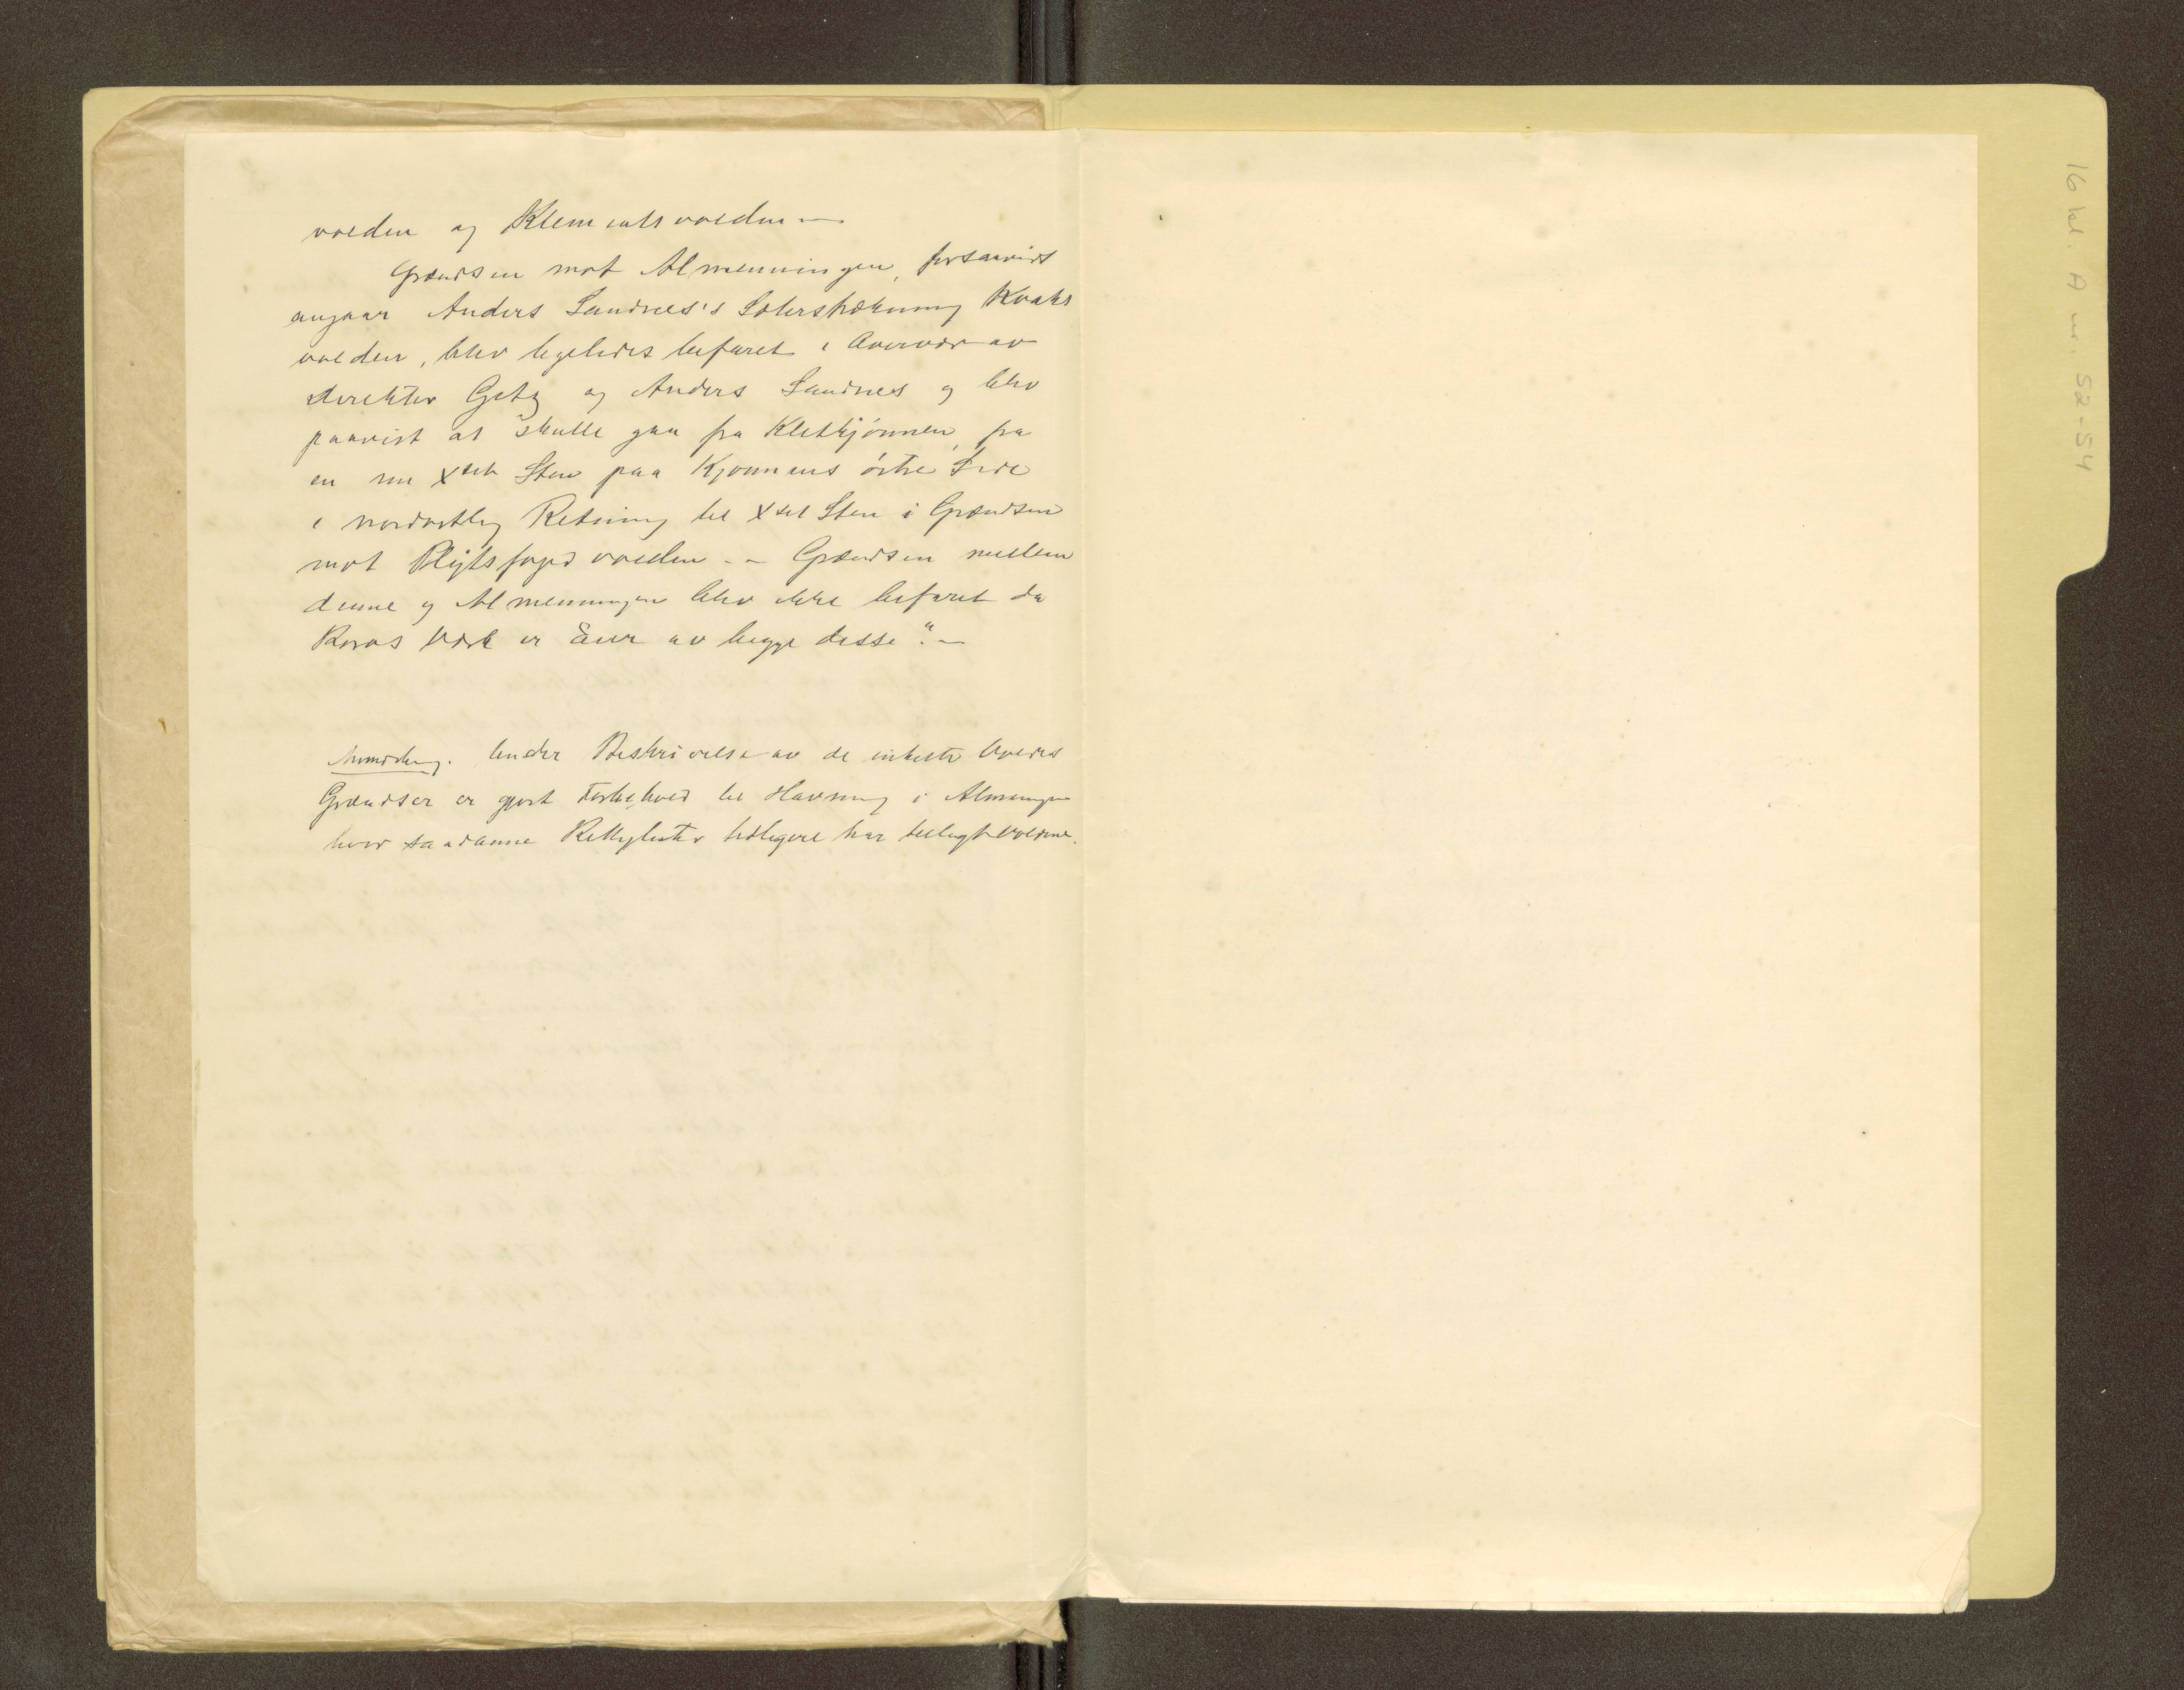 volden og Klementsvolden –
Grændsen mot Almenningen, forsaavidt
angaar Anders Sandnes's Sæterstrækning Kvaks
volden, blev ligeledes befaret i Overvær av
direktør Getz og Anders Sandnes og blev
paavist at skulle gaa fra Kletkjønnen, fra
en nu xset Sten paa Kjønnens østre Side
i nordostlig Retning til xset Sten i Grændsen
mot Plytsfogdvolden. – Grændsen mellem
denne og Almenningen blev ikke befaret da
Røros Værk er Eier av begge disse". –
Anmerkng. Under Beskrivelse av de enkelte Voldes
Grændser er gjort Forbehold til Havning i Almeningen
hvor saadanne Rettigheter tidligere har tillagt Voldene.
16 kl. A nr. 52-54